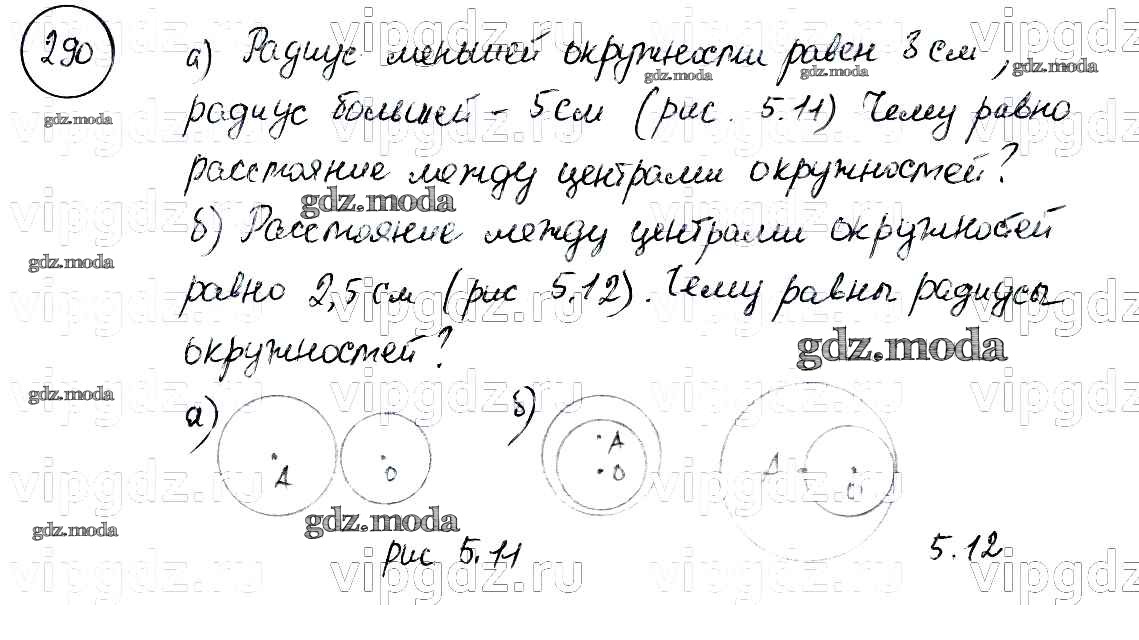 290
а) Радиус меньшей окружности равен 3 см,
радиус большей - 5 см (рис. 5.11) Чему равно
расстояние между центрами окружностей?
б) Расстояние между центрами окружностей
равно 2,5 см (рис 5.12). Чему равны радиусы
окружностей?
а) A O б) A O A O
рис 5.11 5.12
vipgdz.ru
gdz.moda